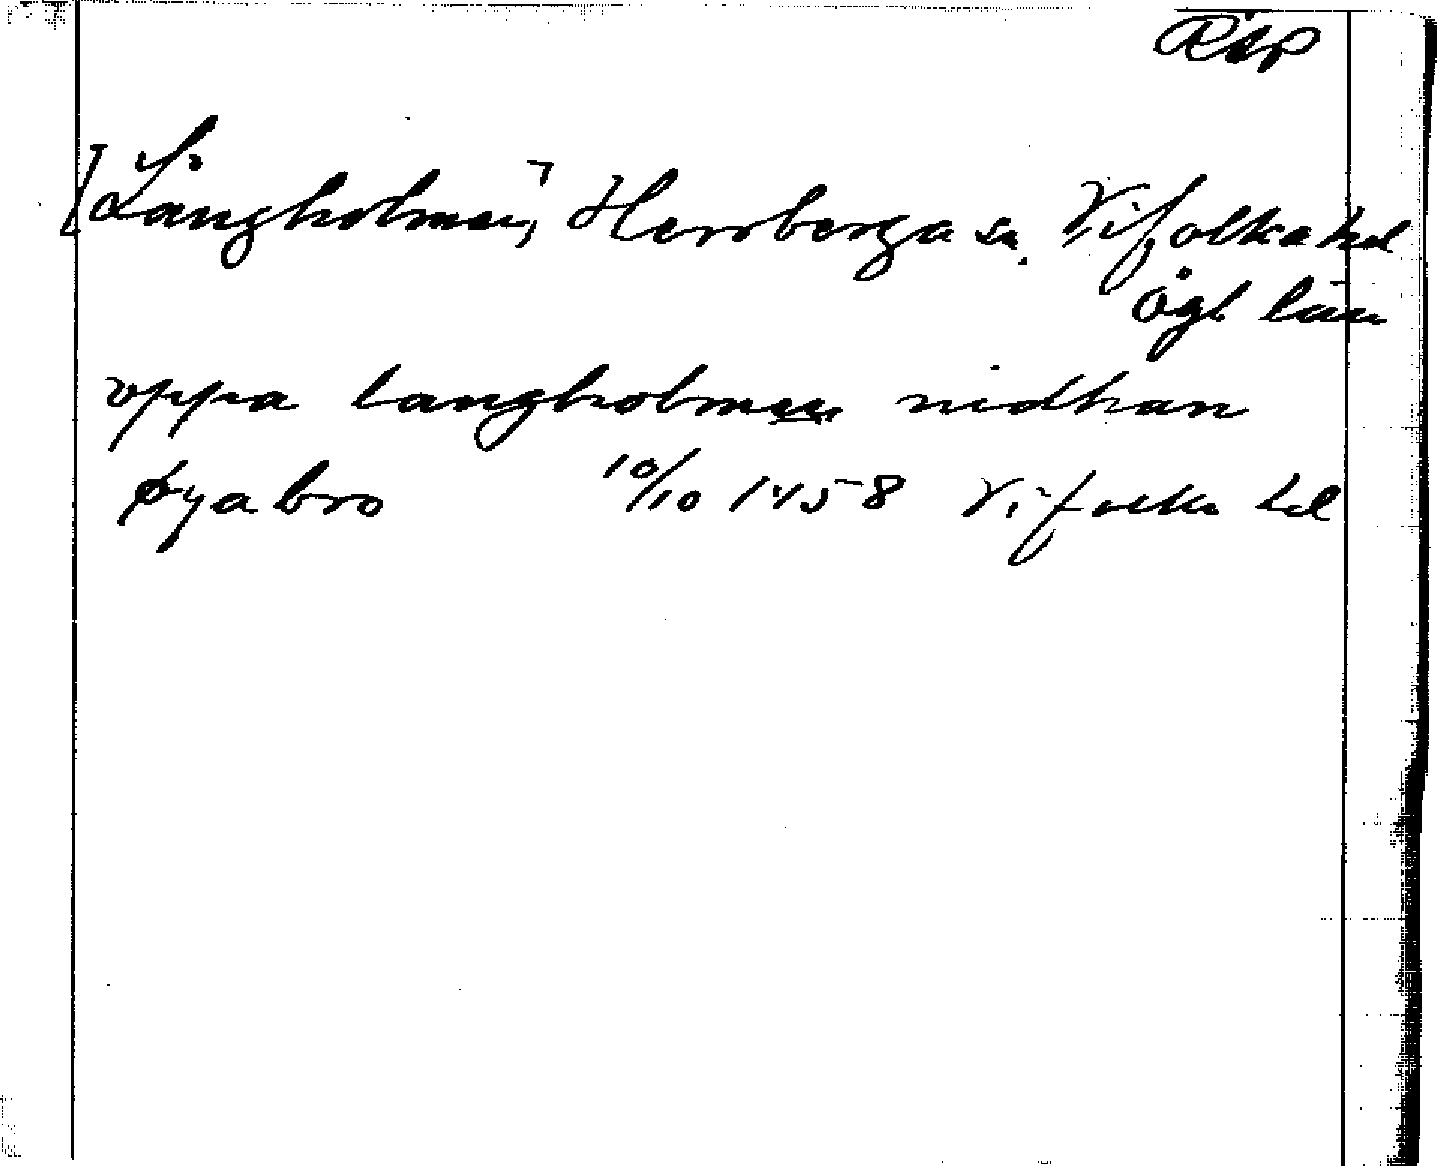 RAP
[Långholmen], Herrberga sn. Vifolka hd
Ögl län
oppa langholmen nidhan
øyabro 10/10 1458 Vifolka hd